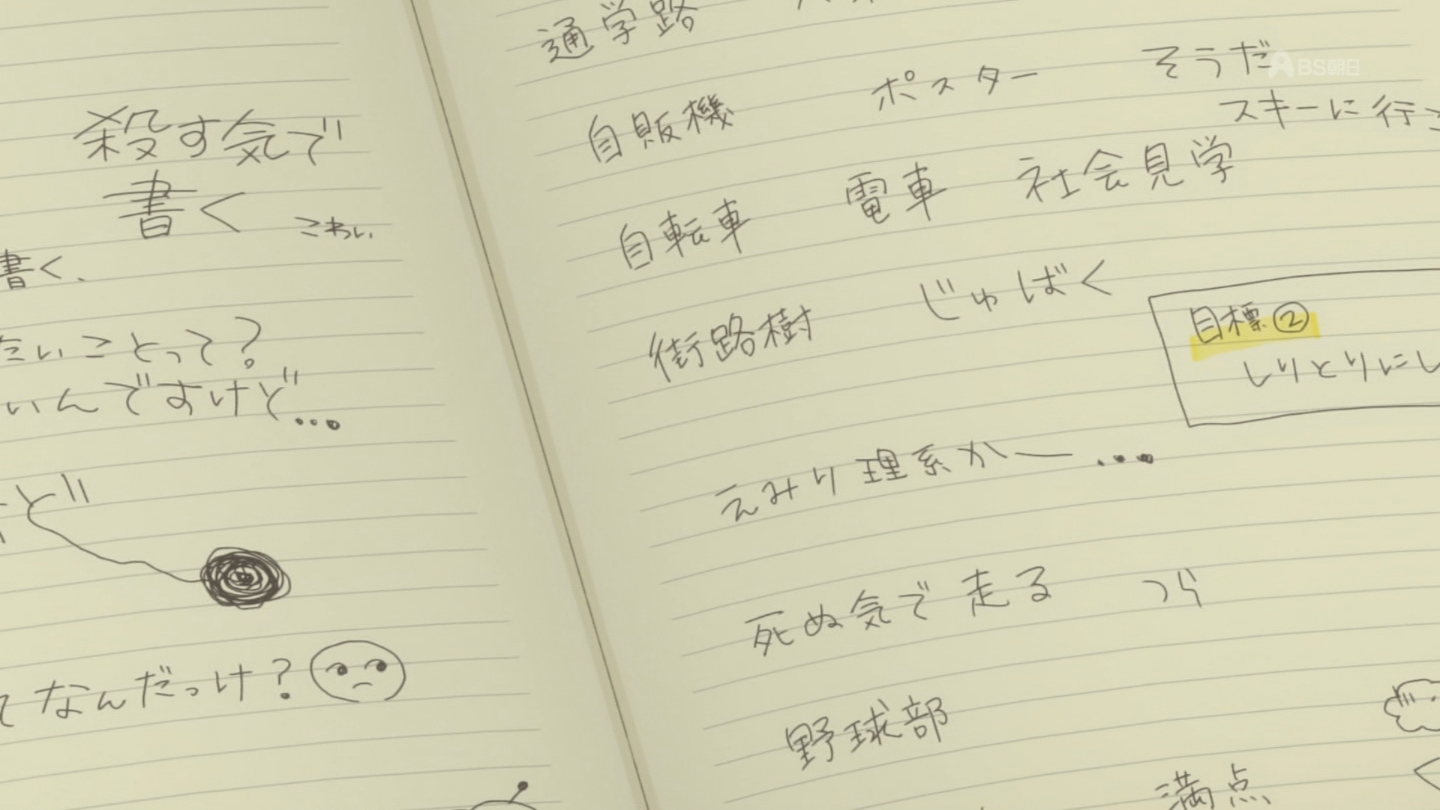 殺す気で
書く
こわい
書く、
たいことって?
いんですけど…
けど
てなんだっけ?
通学路
自販機 ポスター そうだ
スキーに行こ
自転車 電車 社会見学
街路樹 じゅばく
目標②
しりとりにし
えみり理系かー…
死ぬ気で走る つら
野球部
満点
BS朝日